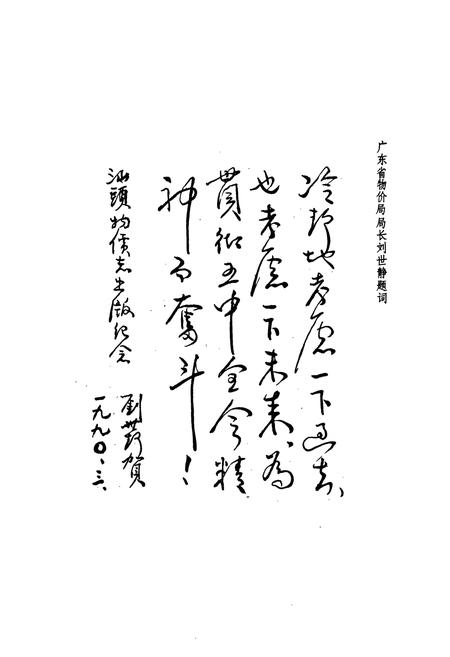 广东省物价局局长刘世静题词
冷却地考虑一下过去、
也考虑一下未来、为
贯彻五中全会精
神而奋斗！
汕頭物價志出版纪念
劉世静賀
一九九〇、三、